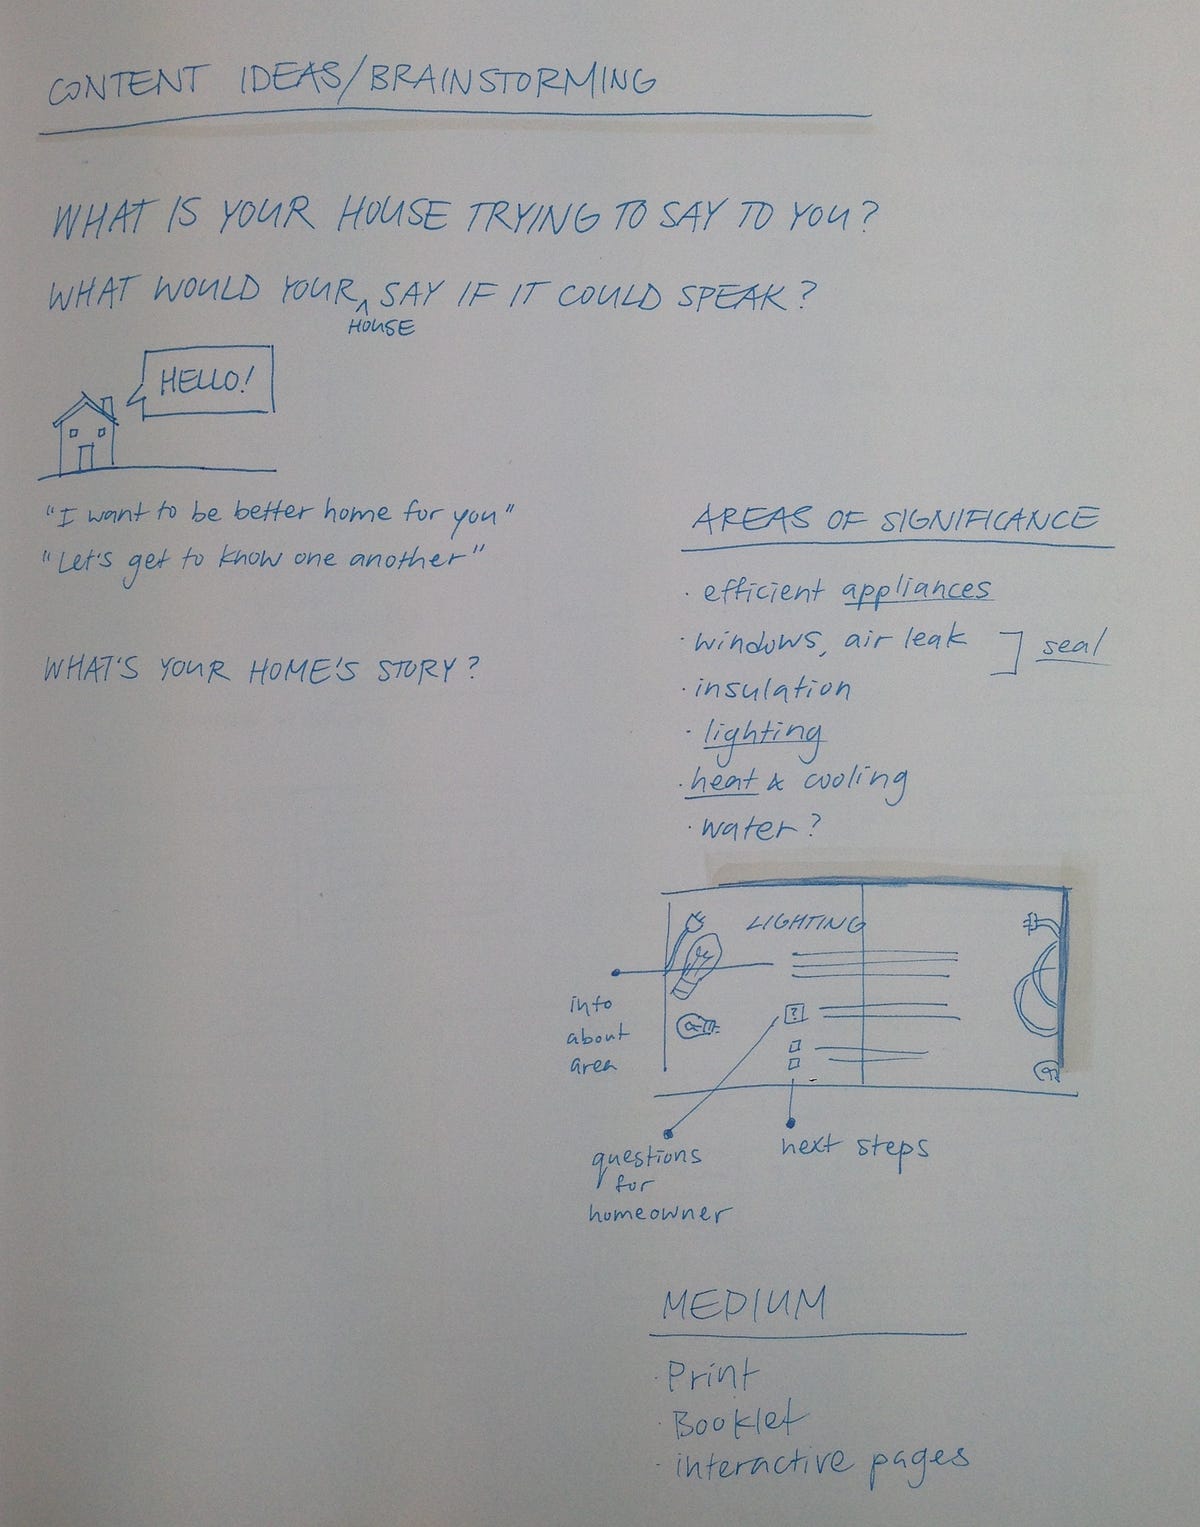 CONTENT IDEAS/BRAINSTORMING
WHAT IS YOUR HOUSE TRYING TO SAY TO YOU?
WHAT WOULD YOUR ^ SAY IF IT COULD SPEAK?
HOUSE
HELLO!
"I want to be better home for you"
"Let's get to know one another"
WHAT'S YOUR HOME'S STORY?
AREAS OF SIGNIFICANCE
· efficient appliances
· windows, air leak ] seal
· insulation
· lighting
· heat & cooling
· water?
LIGHTING
?
info
about
area
questions
for
homeowner
next steps
MEDIUM
· Print
· Booklet
· interactive pages